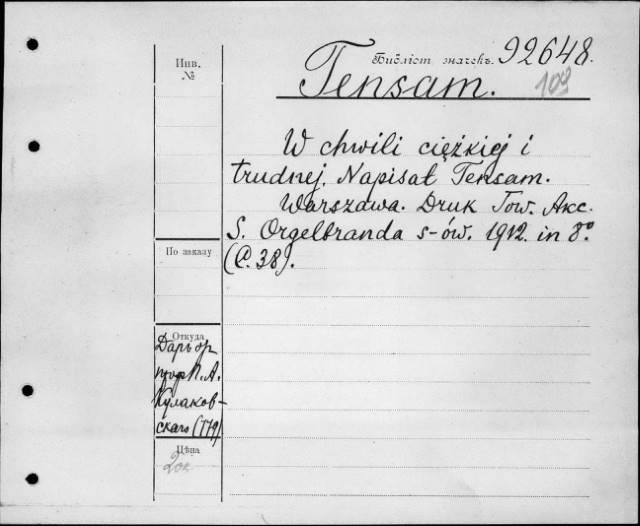 Инв.
№
Библіот. значекъ. 92648.
Tensam.
103
W chwili ciężkiej i
trudnej. Napisał Tensam.
Warszawa. Druk Tow. Akc.
S. Orgelbranda s-ów. 1912. in 8º
(C. 38).
По заказу
Откуда
Даръ
проф. П. А.
Кулаков-
скаго (779)
Цѣна